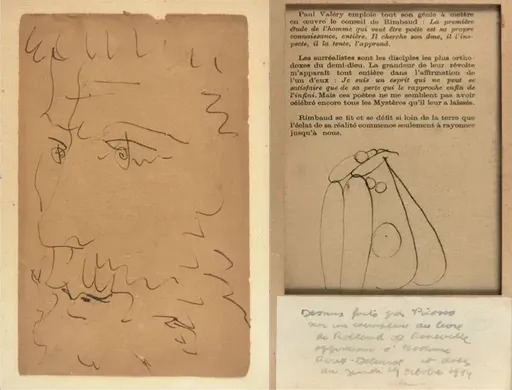 Paul Valéry emploie tout son génie à mettre
en œuvre le conseil de Rimbaud : La première
étude de l'homme qui veut être poète est sa propre
connaissance, entière. Il cherche son âme, il l'ins-
pecte, il la tente, l'apprend.
Les surréalistes sont les disciples les plus ortho-
doxes du demi-dieu. La grandeur de leur révolte
m'apparaît tout entière dans l'affirmation de
l'un d'eux : Je suis un esprit qui ne peut se
satisfaire que de sa perte qui le rapproche enfin de
l'infini. Mais ces poètes ne me semblent pas avoir
célébré encore tous les Mystères qu'il leur a laissés.
Rimbaud se fit et se défit si loin de la terre que
l'éclat de sa réalité commence seulement à rayonner
jusqu'à nous.
Dessins faits par Picasso
sur un exemplaire du livre
de Rolland de Renéville